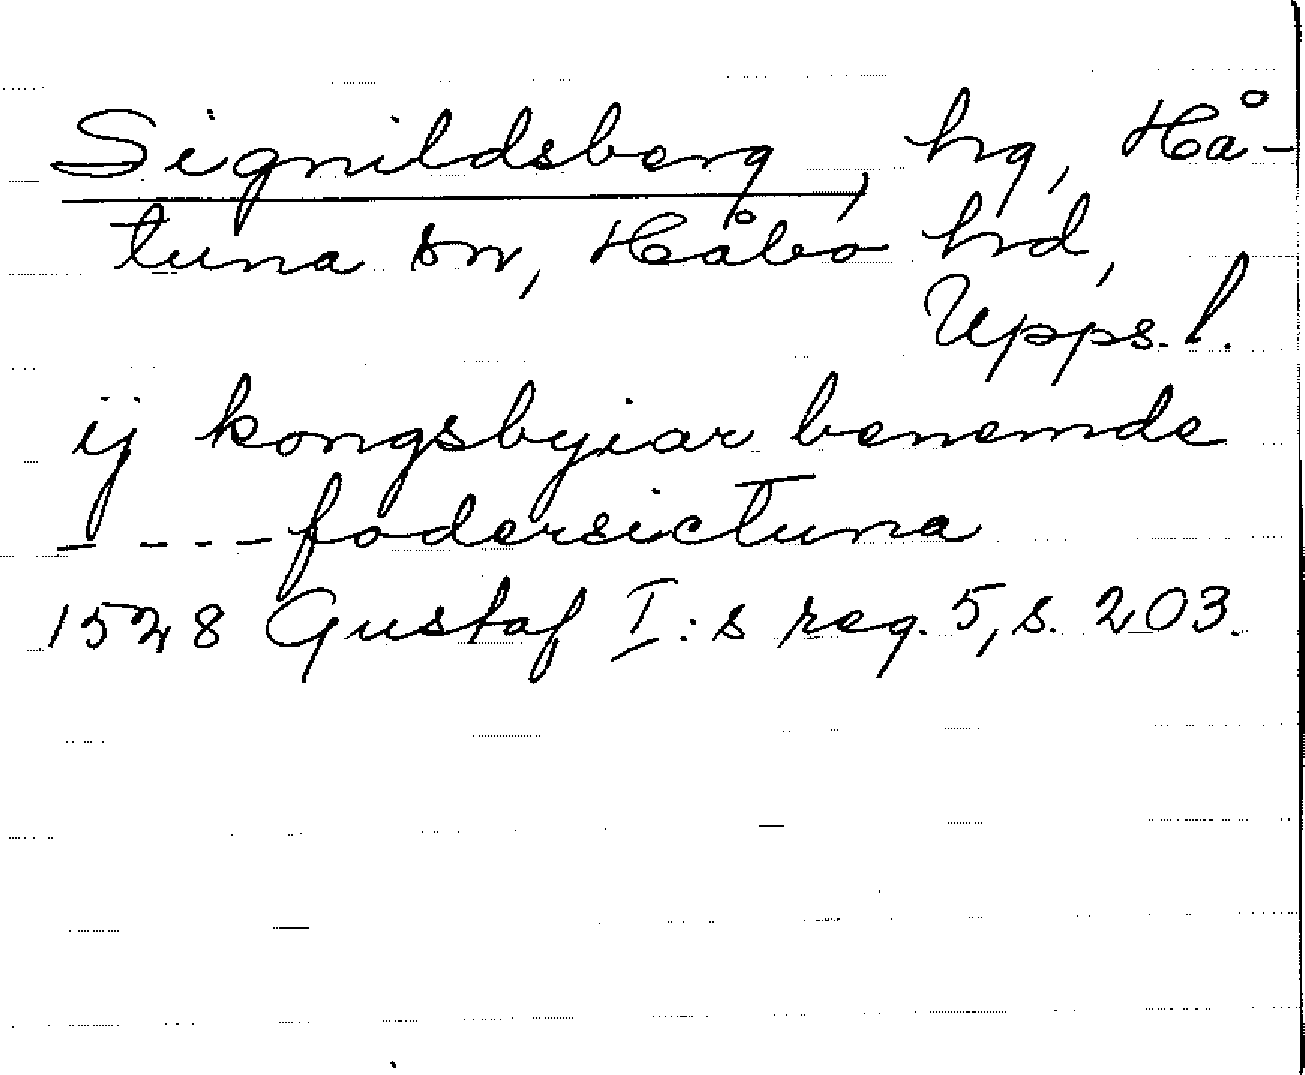 Signildsberg, hg, Hå-
tuna sn, Håbo hd,
Upps. l.
ij kongsbyiar benemde
- - - - fodersictuna
1528 Gustaf I:s reg. 5, s. 203.